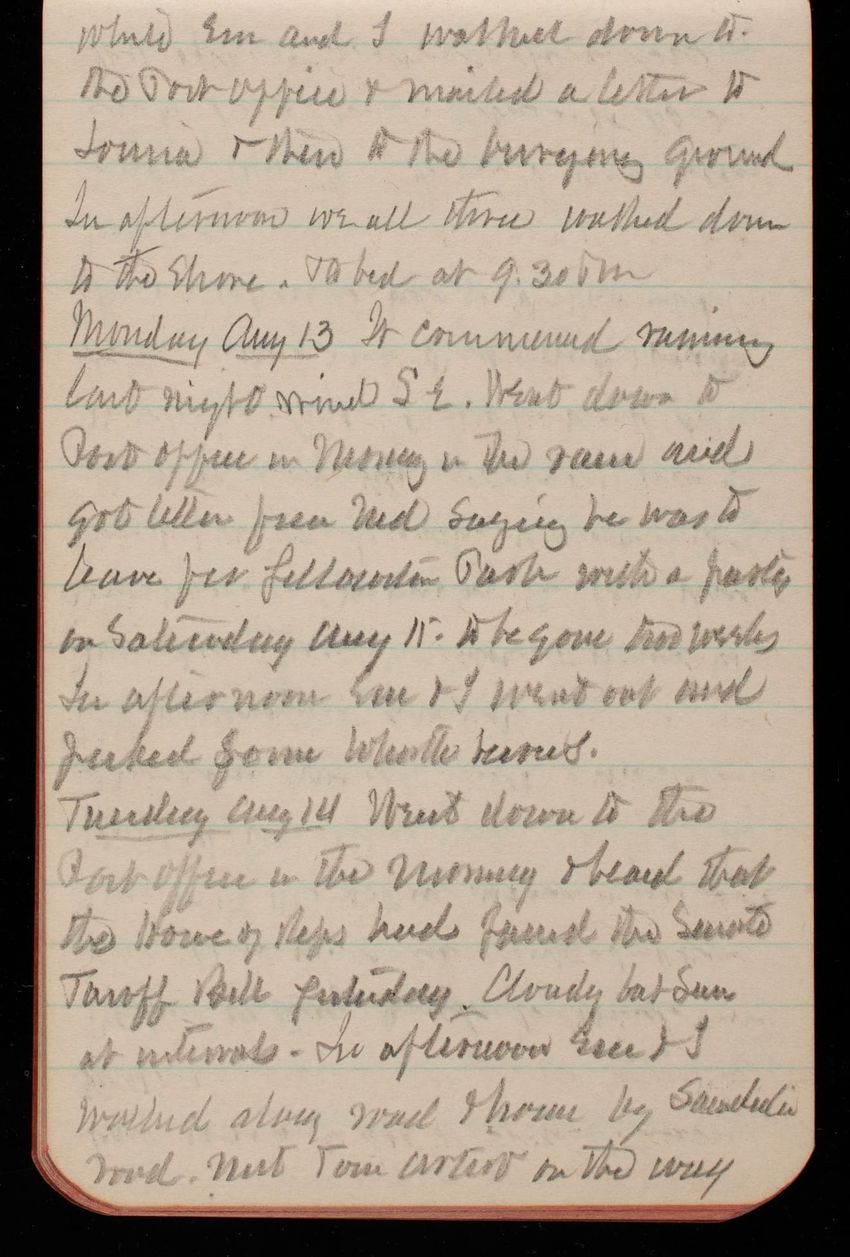 while Em and I walked down to
the Post office & mailed a letter to
& then to the burying ground
In afternoon we all three walked down
to the Shore. To bed at 9.30 Pm
Monday Aug 13 It commenced raining
last night wind S E. Went down to
Post office in Morning in the rain and
got letter from Ned saying he was to
leave for Yellowston Park with a party
on Saturday Aug to be gone two weeks
In afternoon Em & I went out and
picked some berries.
Tuesday Aug 14 Went down to the
Post office in the Morning & heard that
the House of Reps had passed the Senate
Tariff Bill yesterday. Cloudy but Sun
at intervals - In afternoon Em & I
walked along road & home by
road. Met Tom on the way